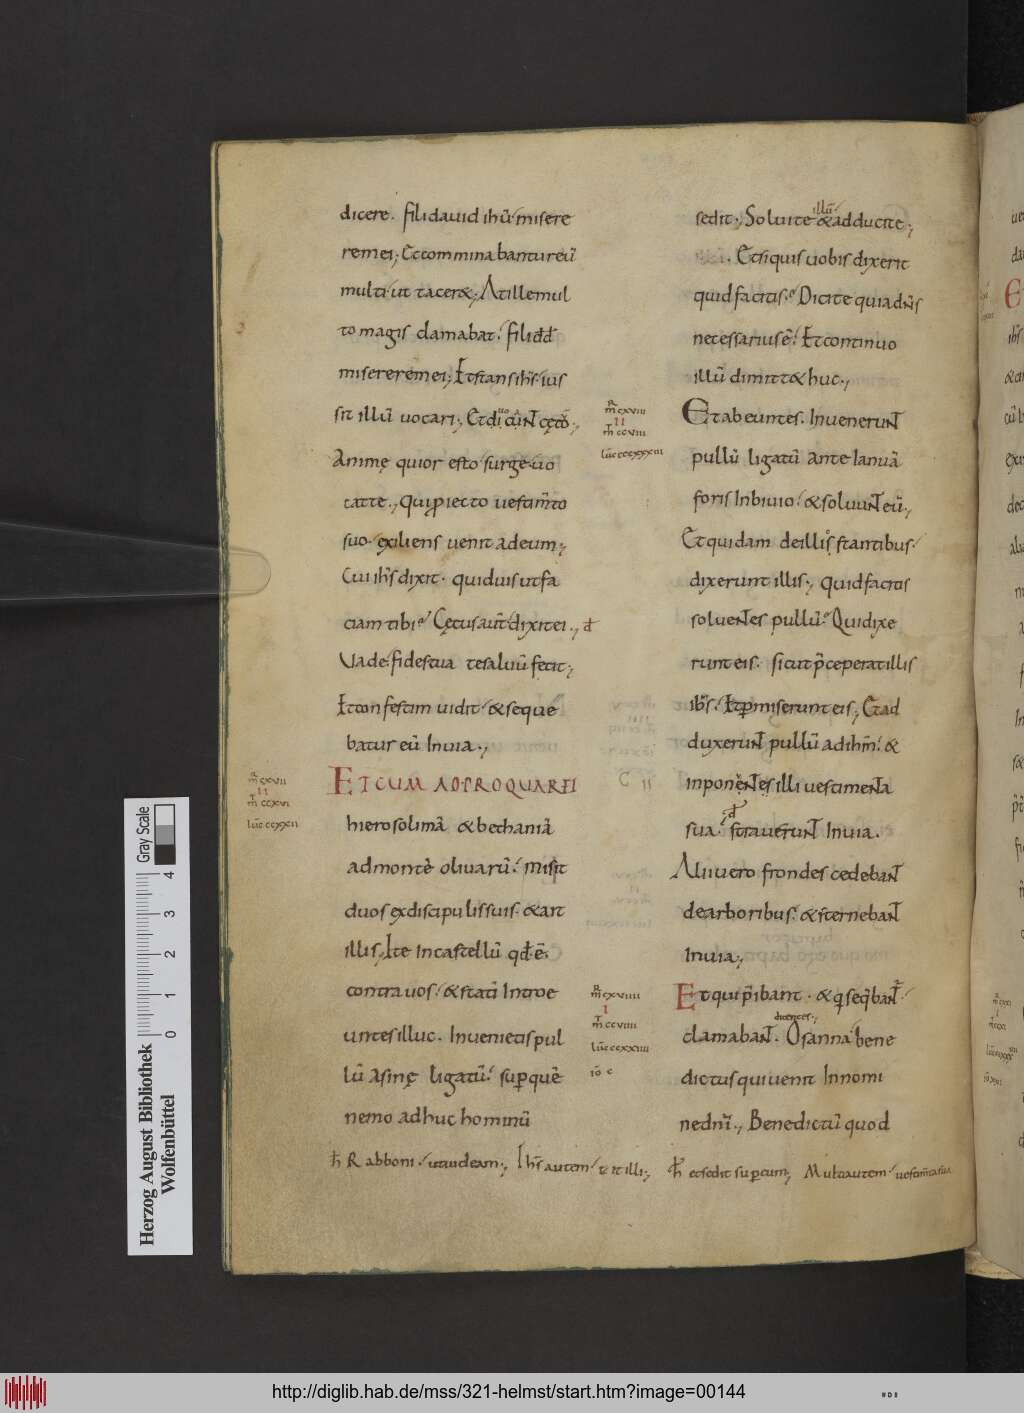 dicere. fili dauid ihū misere
re mei; Et comminabantur eū
multi ut tacer&; At ille mul
to magis clamabat. fili dd
miserere mei; Et stans ihs ius
sit illū uocari; Et
Animę quior esto surge uo
cat te; Qui piecto uestim̄to
suo exiliens uenit ad eum;
Cui ihs dixit. quid uis ut fa
ciam tibi? Cęcus aūt dixit ei; đ
Vade. fides tua te saluū fecit;
Et confestim uidit. & seque
batur eū In uia;
ET CUM ADPROQUAREI
hierosolimā & bethaniā
ad montē oliuarū. misit
duos ex discipulis suis. & ait
illis; Ite In castellū qđ ē
contra uos. & statī Introe
untes illuc. Inuenietis pul
lū Asinę ligatū. sup quē
nemo adhuc hominū
ħ Rabboni. ut uideam; Ihs autem ait illi;
m̄ cxvii
II
m̄ ccvi
lūc ccxxxii
illū
sedit; Soluite & adducite;
Et si quis uobis dixerit
quid facitis? Dicite quia dn̄s
necessarius ē. Et continuo
illū dimitt& huc;
Et abeuntes. InueneruNT
pullū ligatū Ante Ianuā
foris In biuio. & soluuNT eū;
Et quidam de illis stantibus
dixerunt illis; quid facitis
solueNTes pullū? Qui dixe
runt eis. sicut p̄ceperat illis
ihs. Et pmiserunt eis; Et ad
duxeruNT pullū ad ihm̄. &
InponeNTes illi uestimeNTa
sua. strauēruNT In uia.
Alii uero frondes cedebaNT
de arboribus. & sternebaNT
In uia;
Et qui p̄ibant. & q seqbaNT
dicentes;
clamabaNT. Osanna bene
dictus qui uenit In nomi
ne dn̄i; Benedictū quod
ħ et sedit sup eum; Multi autem uestim̄ta sua
m̄ cxviii
II
m̄ ccviii
m̄ cxviiii
I
m̄ ccviiii
lūc ccxxxiiii
iō c
Herzog August Bibliothek
Wolfenbüttel
Gray Scale
0 1 2 3 4
http://diglib.hab.de/mss/321-helmst/start.htm?image=00144